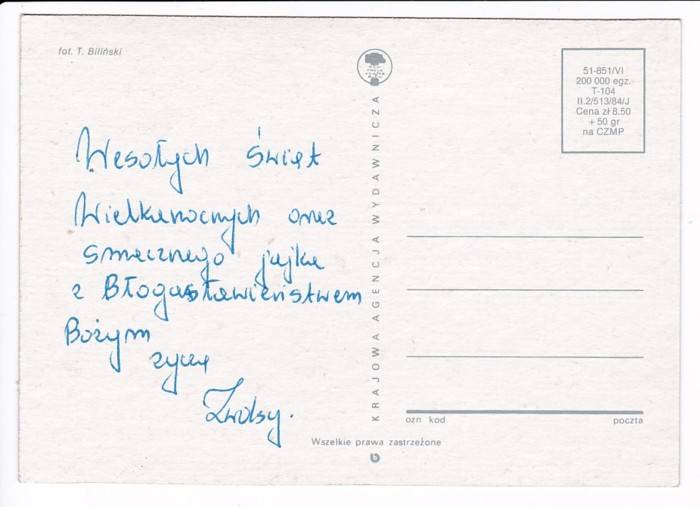 fot. T. Biliński
Wesołych Świąt
Wielkanocnych oraz
smacznego jajka
z Błogosławieństwem
Bożym
życzą
KRAJOWA AGENCJA WYDAWNICZA
51-851/VI
200 000 egz.
T-104
II.2/513/84/J
Cena zł 8.50
+ 50 gr
na CZMP
ozn. kod.
poczta
Wszelkie prawa zastrzeżone